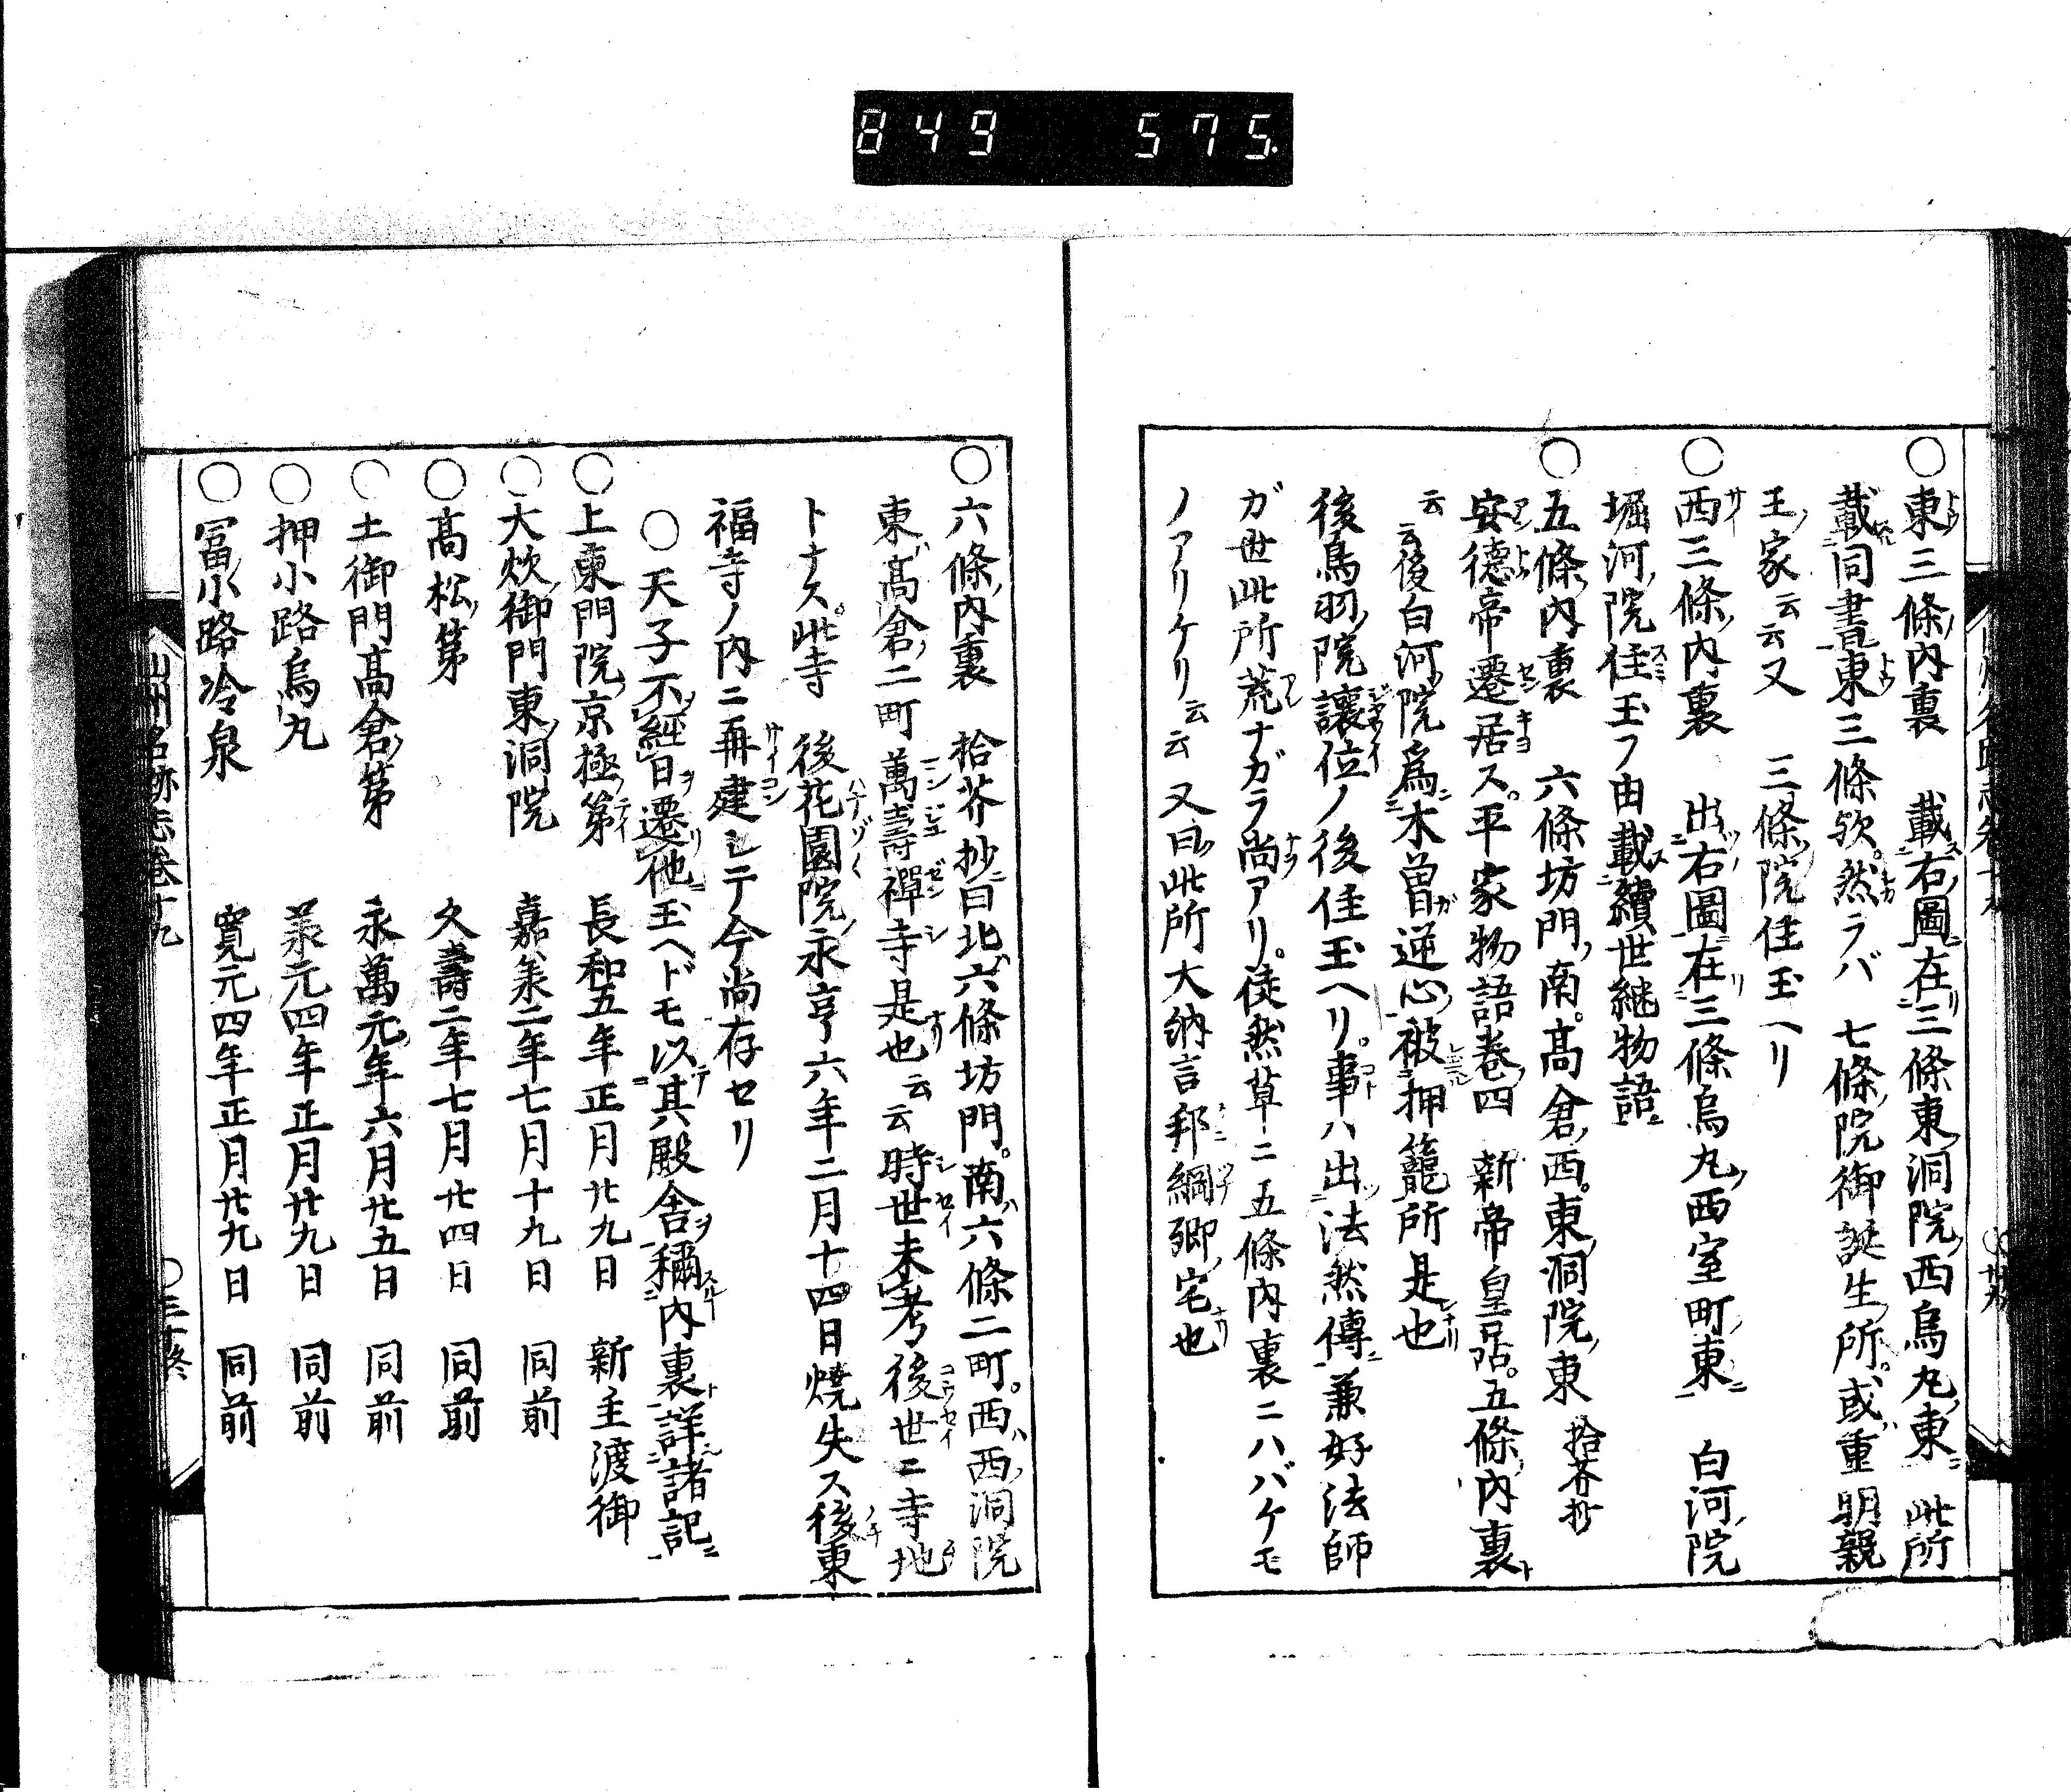 849 575.
○東三條ノ内裏 載右ノ圖在三條東ノ洞院ノ西烏丸ノ東 此所
載同書東三條欤。然ラバ 七條ノ院御誕生ノ所。或ハ重明親
王ノ家云云又 三條ノ院住玉ヘリ
○西三條ノ内裏 出右圖在三條烏丸ノ西室町ノ東 白河ノ院
堀河ノ院住玉フ由載續世継物語
○五條ノ内裏 六條坊門ノ南。高倉ノ西。東ノ洞院ノ東 拾芥抄
安德帝遷居ス。平家物語巻四 新帝皇居。五條ノ内裏ト
云云後白河ノ院為木曽逆心被押籠所是也
後鳥羽ノ院讓位ノ後住玉ヘリ。事ハ出法然傳兼好法師
ガ世此所荒ナガラ尚アリ。徒然草ニ五條内裏ニハバケモ
ノアリケリ云云 又曰此所大納言邦綱卿ノ宅也
○六條ノ内裏 拾芥抄曰北ハ六條坊門。南ハ六條二町。西ハ西ノ洞院
東ハ高倉ノ二町 萬壽禪寺是也云云時世未考後世ニ寺地
トナス。此寺 後花園院ノ永亨六年二月十四日燒失ス後東
福寺ノ内ニ再建シテ今尚存セリ
○天子不經日遷他玉ヘドモ以其殿舎稱内裏詳諸記
○上東門院ノ京極ノ第 長和五年正月廿九日 新主渡御
○大炊御門東ノ洞院 嘉承二年七月十九日 同前
○高松ノ第 久壽二年七月廿四日 同前
○土御門高倉ノ第 永萬元年六月廿五日 同前
○押小路烏丸 承元四年正月廿九日 同前
○冨小路冷泉 寛元四年正月廿九日 同前
山州名跡志巻十九
○三十終